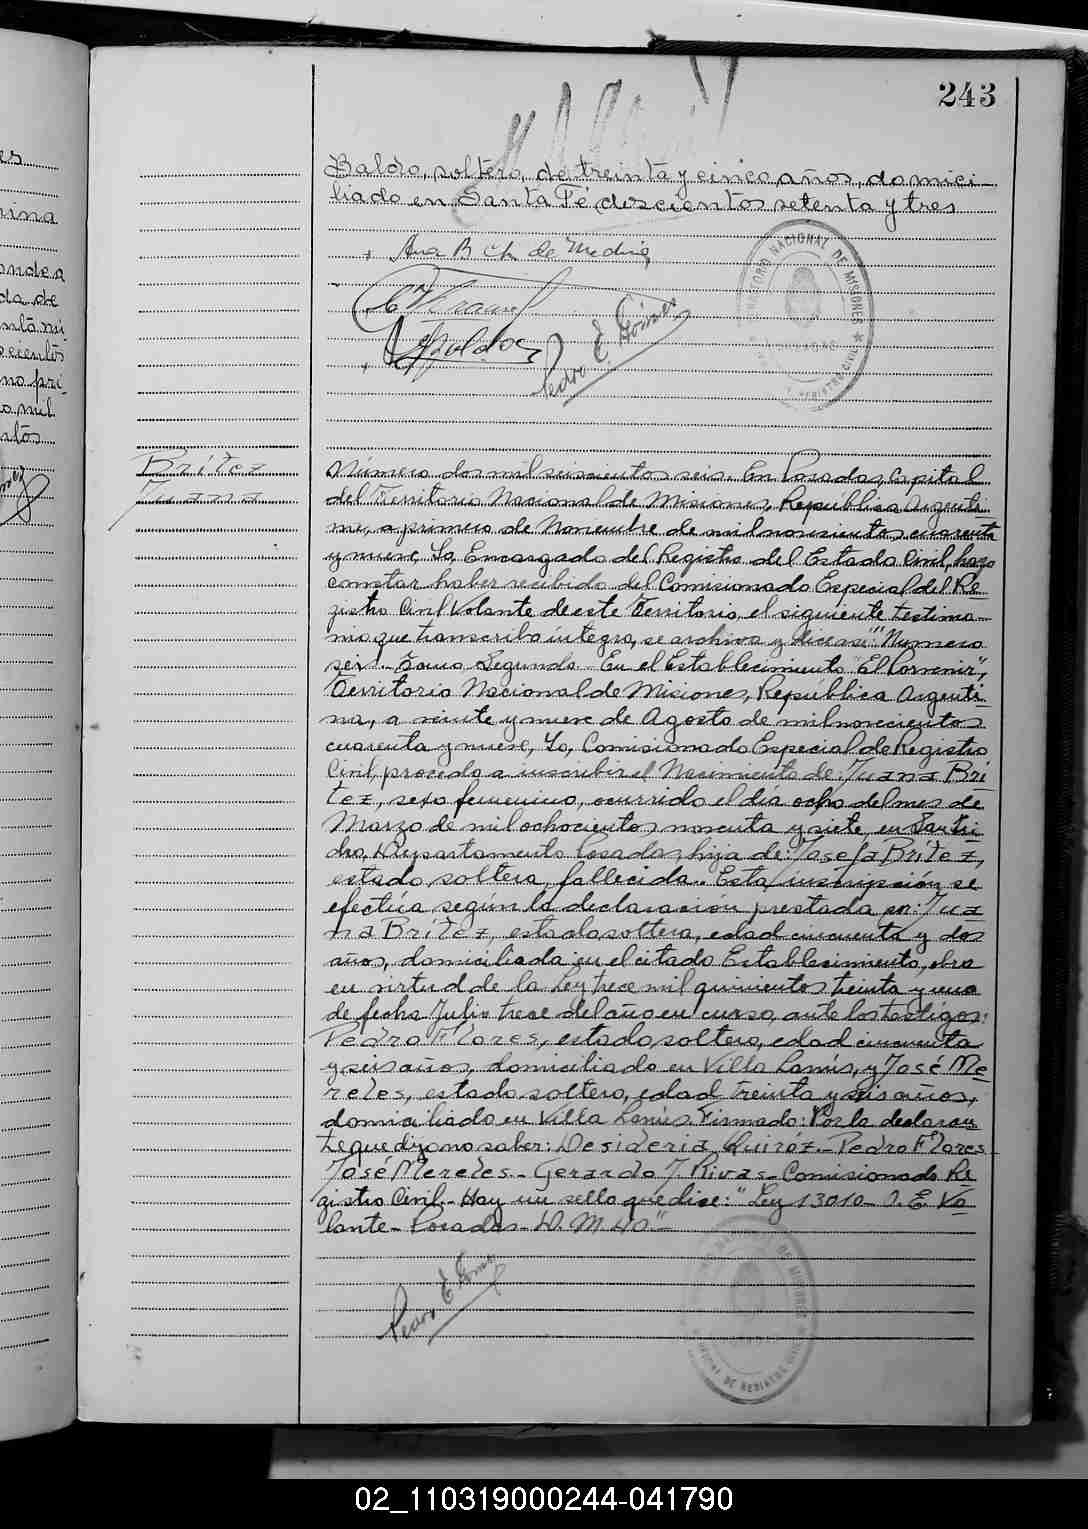 243
Baldo, soltero, de treinta y cinco años, domici-
liado en Santa Fé doscientos setenta y tres
Ana B Ch de Medina
Pedro E. Gómez
Britez
Juana
Número dos mil seiscientos seis. En Posadas, Capital
del Territorio Nacional de Misiones, República Argenti-
na, a primero de Noviembre de mil novecientos cuarenta
y nueve, Yo, Encargado del Registro del Estado Civil, hago
constar haber recibido del Comisionado Especial del Re-
gistro Civil Volante de este Territorio, el siguiente testimo-
nio que transcribo íntegro, se archiva y dice así: "Numero
seis. Tomo Segundo. En el Establecimiento "El Porvenir",
Territorio Nacional de Misiones, República Argenti-
na, a veinte y nueve de Agosto de mil novecientos
cuarenta y nueve, Yo, Comisionado Especial de Registro
Civil, procedo a inscribir el Nacimiento de: Juana Bri-
tez, sexo femenino, ocurrido el día ocho del mes de
Marzo de mil ochocientos noventa y siete, en
Departamento Posadas, hija de: Josefa Britez,
estado soltera, fallecida. Esta inscripción se
efectúa segun la declaración prestada por: Jua-
na Britez, estado soltera, edad cincuenta y dos
años, domiciliada en el citado Establecimiento, obra
en virtud de la Ley trece mil quinientos treinta y uno
de fecha Julio trece del año en curso, ante los testigos:
Pedro Flores, estado soltero, edad cincuenta
y seis años, domiciliado en Villa Lanús, y José Me-
reles, estado soltero, edad treinta y seis años,
domiciliado en Villa Lanús. Firmado: Por la declaran-
te que dijo no saber: Desideria Quiróz - Pedro Flores
José Mereles - Gerardo J. Rivas - Comisionado Re-
gistro Civil - Hay un sello que dice: "Ley 13010 - O. E. Vo-
lante - Posadas -
Pedro E Gómez
02_110319000244-041790